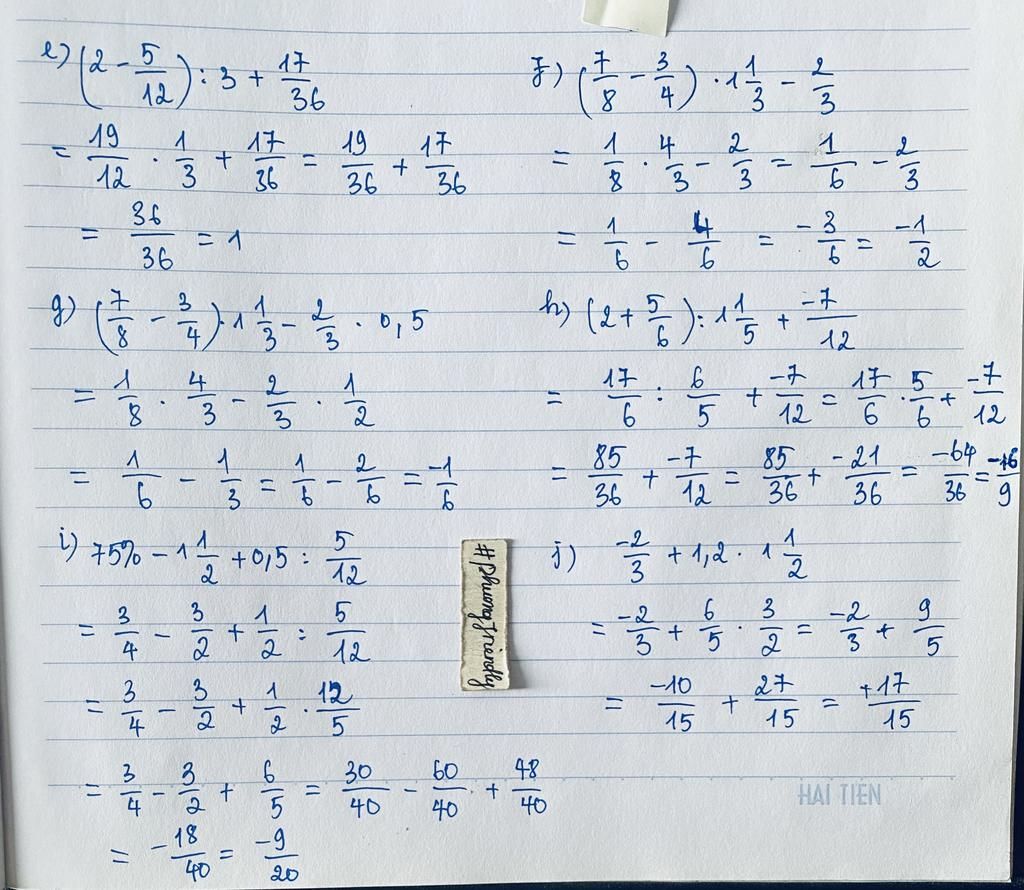 e) (2 - 5/12) : 3 + 17/36
= 19/12 . 1/3 + 17/36 = 19/36 + 17/36
= 36/36 = 1
f) (7/8 - 3/4) . 1 1/3 - 2/3
= 1/8 . 4/3 - 2/3 = 1/6 - 2/3
= 1/6 - 4/6 = -3/6 = -1/2
g) (7/8 - 3/4) . 1 1/3 - 2/3 . 0,5
= 1/8 . 4/3 - 2/3 . 1/2
= 1/6 - 1/3 = 1/6 - 2/6 = -1/6
h) (2 + 5/6) : 1 1/5 + -7/12
= 17/6 : 6/5 + -7/12 = 17/6 . 5/6 + -7/12
= 85/36 + -7/12 = 85/36 + -21/36 = -64/36 = -16/9
i) 75% - 1 1/2 + 0,5 : 5/12
= 3/4 - 3/2 + 1/2 : 5/12
= 3/4 - 3/2 + 1/2 . 12/5
= 3/4 - 3/2 + 6/5 = 30/40 - 60/40 + 48/40
= -18/40 = -9/20
#phuongfriendly
j) -2/3 + 1,2 . 1 1/2
= -2/3 + 6/5 . 3/2 = -2/3 + 9/5
= -10/15 + 27/15 = +17/15
HẢI TIẾN